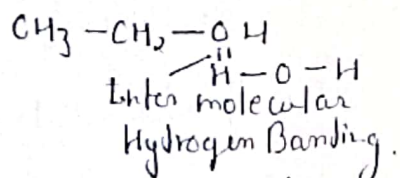 CH₃ – CH₂ – O H
H – O – H
Inter molecular
Hydrogen Banding.